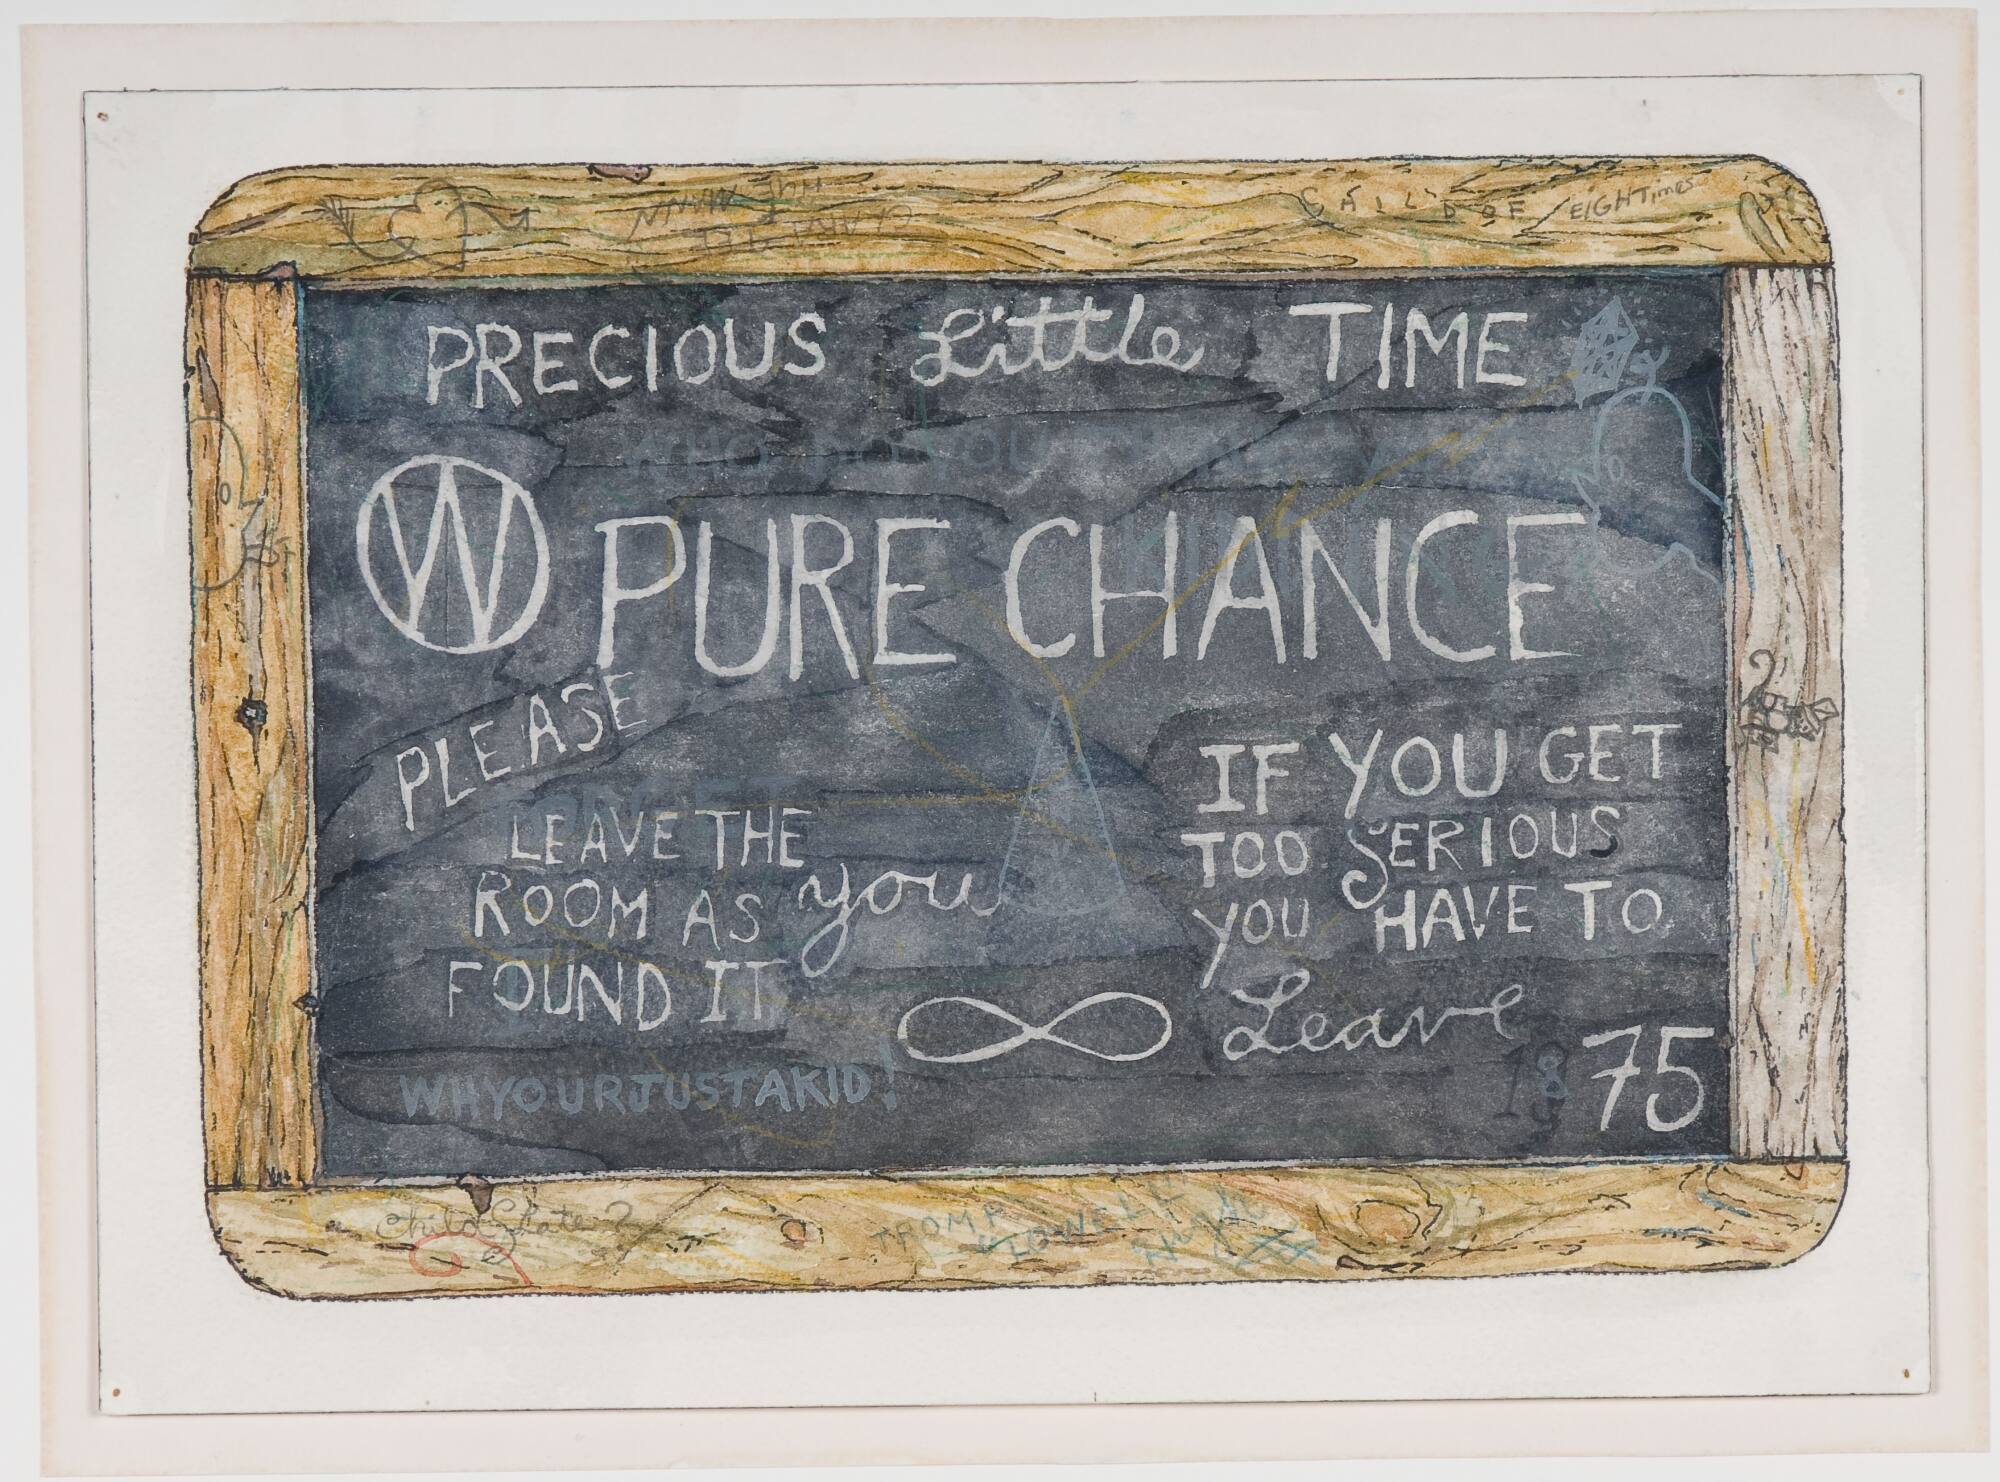 EIGHTimes
PRECIOUS Little TIME
WHO DO YOU
W PURE CHANCE
PLEASE
LEAVE THE
ROOM AS you
FOUND IT
IF YOU GET
TOO SERIOUS
YOU HAVE TO
Leave
WHYOURJUSTAKID!
1875
a Child Slate?
TROMP